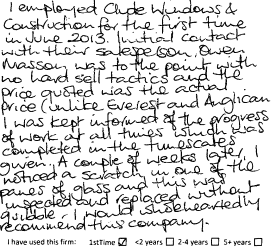 I employed Clyde Windows &
Construction for the first time
in June 2013. Initial contact
with their salesperson, Owen
Masson, was to the point with
no hard sell tactics and the
price quoted was the actual
price (unlike Everest and Anglican
I was kept informed of the progress
of work at all times which was
completed in the timescales
given. A couple of weeks later, I
noticed a scratch in one of the
panes of glass and this was
inspected and replaced without
quibble. I would wholeheartedly
recommend this company.
I have used this firm: 1stTime ☑ <2 years ☐ 2-4 years ☐ 5+ years ☐